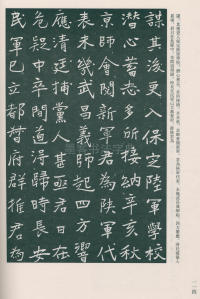 謀其後更 保定陸軍學校
潛心蓄志多所接納辛亥秋
京師會閱新軍君為陝軍代
表未幾武昌義師起四方響
應清廷捕黨人甚亟君日在
危疑中卒間道得歸時長安
民軍已立都督府群推君為